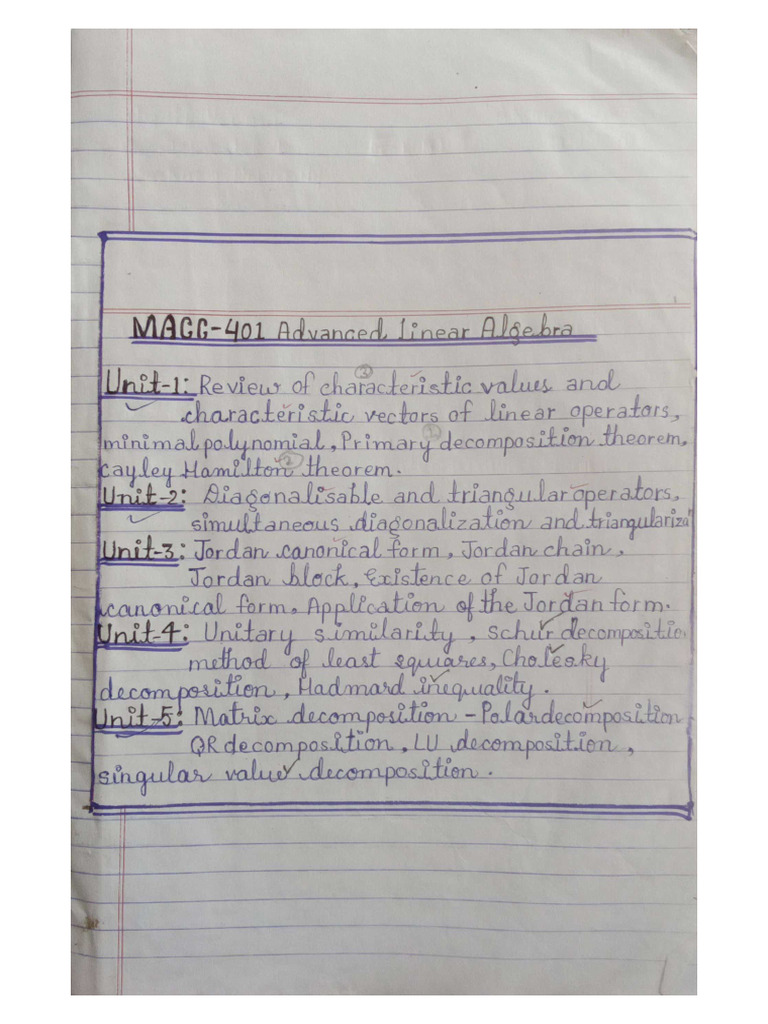 MACC-401 Advanced Linear Algebra
Unit-1: Review of characteristic values and
characteristic vectors of linear operators,
minimal polynomial, Primary decomposition theorem,
Cayley Hamilton theorem.
Unit-2: Diagonalisable and triangular operators,
simultaneous diagonalization and triangulariza
Unit-3: Jordan canonical form, Jordan chain,
Jordan block, Existence of Jordan
canonical form, Application of the Jordan form.
Unit-4: Unitary similarity, Schur decompositio
method of least squares, Cholesky
decomposition, Hadmard inequality.
Unit-5: Matrix decomposition - Polar decomposition,
QR decomposition, LU decomposition,
singular value decomposition.